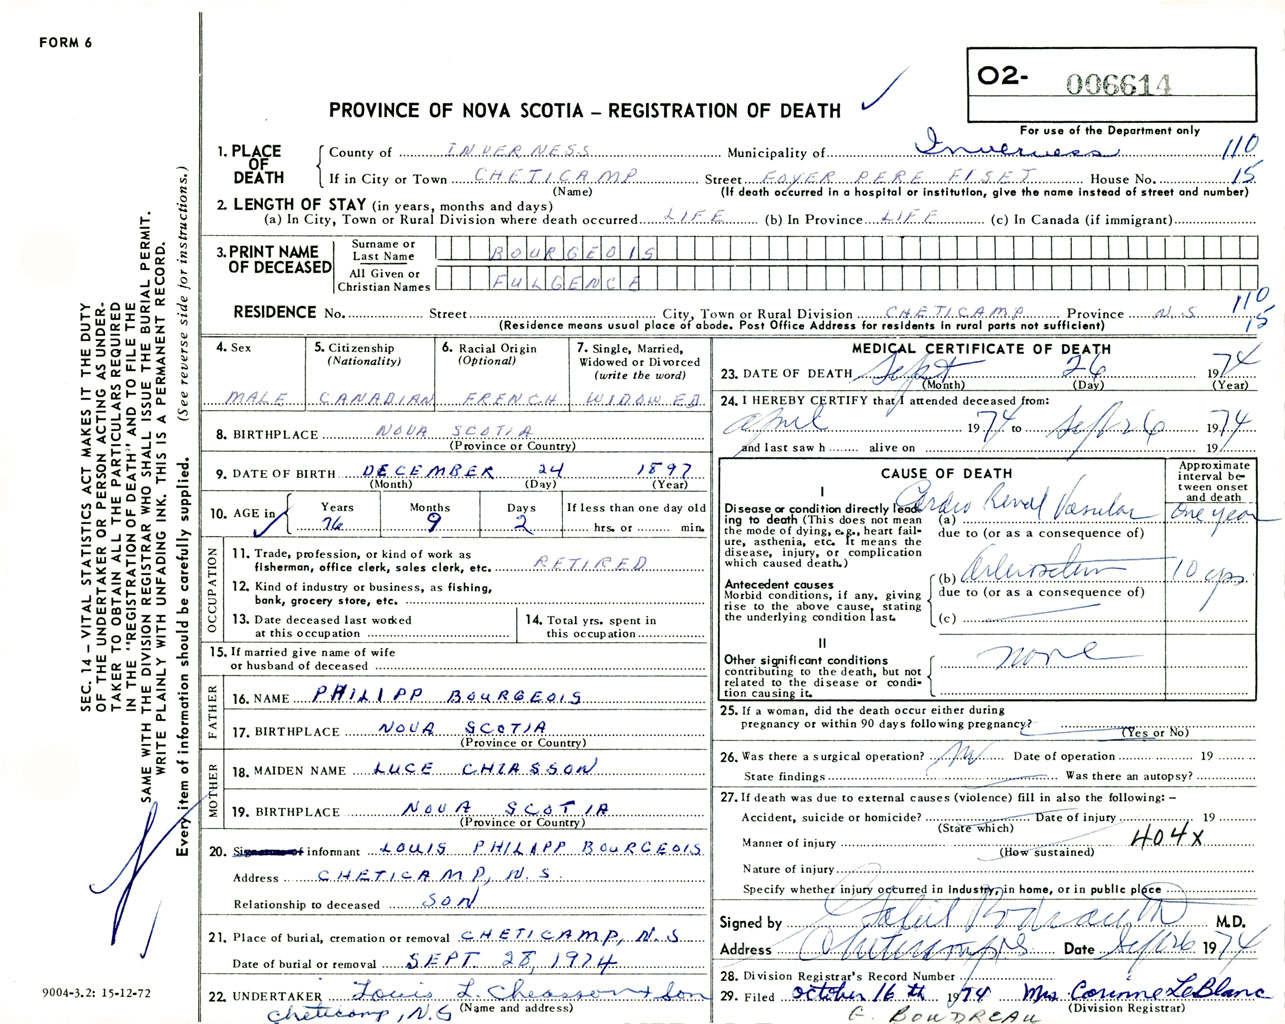 FORM 6
O2- 006614
PROVINCE OF NOVA SCOTIA – REGISTRATION OF DEATH
For use of the Department only
1. PLACE OF DEATH
County of INVERNESS Municipality of Inverness 110
If in City or Town CHETICAMP Street FOYER PERE FISET House No. 15
(Name) (If death occurred in a hospital or institution, give the name instead of street and number)
2. LENGTH OF STAY (in years, months and days)
(a) In City, Town or Rural Division where death occurred LIFE (b) In Province LIFE (c) In Canada (if immigrant)
3. PRINT NAME OF DECEASED
Surname or Last Name BOURGEOIS
All Given or Christian Names FULGENCE
110
RESIDENCE No. Street City, Town or Rural Division CHETICAMP Province N.S
(Residence means usual place of abode. Post Office Address for residents in rural parts not sufficient) 15
4. Sex
MALE
5. Citizenship
(Nationality)
CANADIAN
6. Racial Origin
(Optional)
FRENCH
7. Single, Married,
Widowed or Divorced
(write the word)
WIDOWED
8. BIRTHPLACE NOVA SCOTIA
(Province or Country)
9. DATE OF BIRTH DECEMBER 24 1897
(Month) (Day) (Year)
10. AGE in
Years Months Days If less than one day old
76 9 2 hrs. or min.
OCCUPATION
11. Trade, profession, or kind of work as
fisherman, office clerk, sales clerk, etc. RETIRED
12. Kind of industry or business, as fishing,
bank, grocery store, etc.
13. Date deceased last worked
at this occupation
14. Total yrs. spent in
this occupation
15. If married give name of wife
or husband of deceased
FATHER
16. NAME PHILIPP BOURGEOIS
17. BIRTHPLACE NOVA SCOTIA
(Province or Country)
MOTHER
18. MAIDEN NAME LUCE CHIASSON
19. BIRTHPLACE NOVA SCOTIA
(Province or Country)
20. Signature of informant LOUIS PHILIPP BOURGEOIS
Address CHETICAMP, N.S.
Relationship to deceased SON
21. Place of burial, cremation or removal CHETICAMP, N.S
Date of burial or removal SEPT. 28, 1974
22. UNDERTAKER Louis L. Cheasson & Son
Cheticamp, N.S (Name and address)
MEDICAL CERTIFICATE OF DEATH
23. DATE OF DEATH Sept 26 1974
(Month) (Day) (Year)
24. I HEREBY CERTIFY that I attended deceased from:
april 1974 to Sept 26 1974
and last saw h alive on 19
CAUSE OF DEATH
Approximate
interval be-
tween onset
and death
I
Disease or condition directly lead-
ing to death (This does not mean
the mode of dying, e.g., heart fail-
ure, asthenia, etc. It means the
disease, injury, or complication
which caused death.)
(a) Cardio Renal Vascular one year
due to (or as a consequence of)
Antecedent causes
Morbid conditions, if any, giving
rise to the above cause, stating
the underlying condition last.
(b) 10
due to (or as a consequence of)
(c)
II
Other significant conditions
contributing to the death, but not
related to the disease or condi-
tion causing it.
none
25. If a woman, did the death occur either during
pregnancy or within 90 days following pregnancy?
(Yes or No)
26. Was there a surgical operation? no Date of operation 19
State findings Was there an autopsy?
27. If death was due to external causes (violence) fill in also the following: –
Accident, suicide or homicide? Date of injury 19
(State which)
Manner of injury 404X
(How sustained)
Nature of injury
Specify whether injury occurred in Industry, in home, or in public place
Signed by M.D.
Address Cheticamp NS Date Sept 26 1974
28. Division Registrar's Record Number
29. Filed October 16th 1974 Mrs. Corinne LeBlanc
(Division Registrar)
E. BOUDREAU
SEC. 14 – VITAL STATISTICS ACT MAKES IT THE DUTY
OF THE UNDERTAKER OR PERSON ACTING AS UNDER-
TAKER TO OBTAIN ALL THE PARTICULARS REQUIRED
IN THE "REGISTRATION OF DEATH" AND TO FILE THE
SAME WITH THE DIVISION REGISTRAR WHO SHALL ISSUE THE BURIAL PERMIT.
WRITE PLAINLY WITH UNFADING INK. THIS IS A PERMANENT RECORD.
Every item of information should be carefully supplied. (See reverse side for instructions.)
9004-3.2: 15-12-72